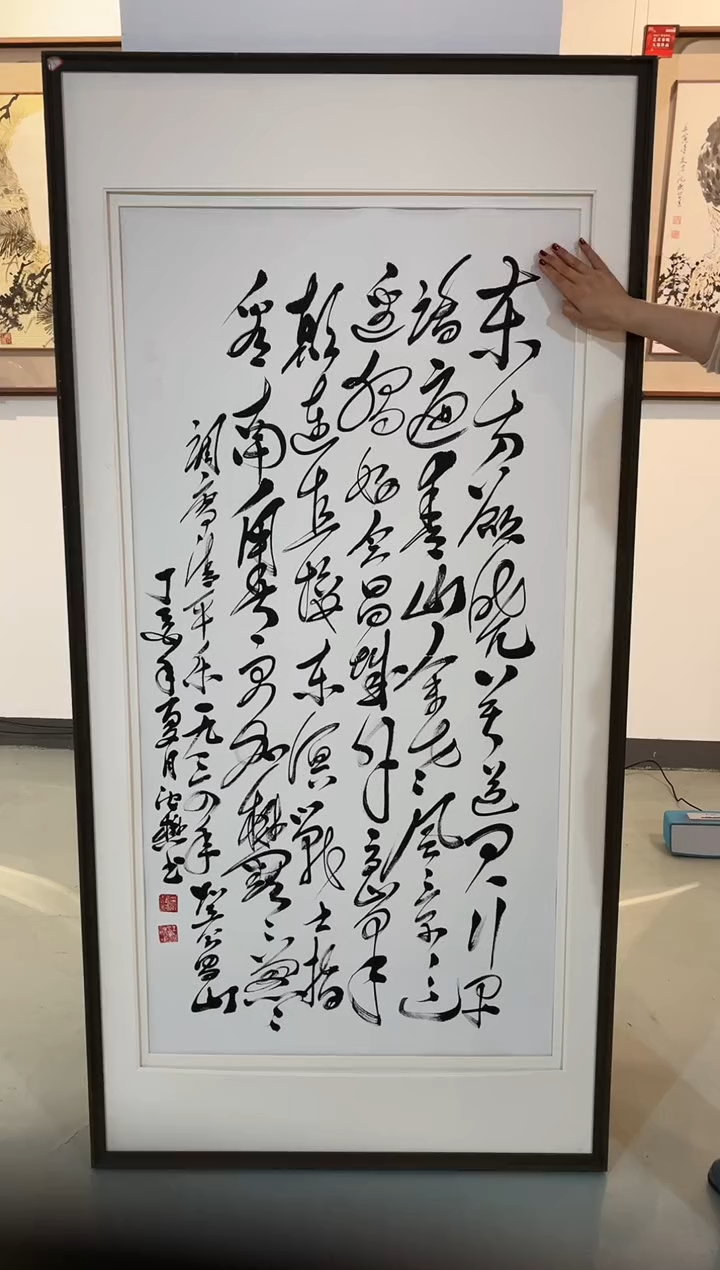 东方欲晓莫道君行早
踏遍青山人未老风景这
边独好会昌城外高峰
颠连直接东溟战士指
看南粤更加郁郁葱葱
调寄清平乐一九三四年登会昌山
丁亥年夏月
书